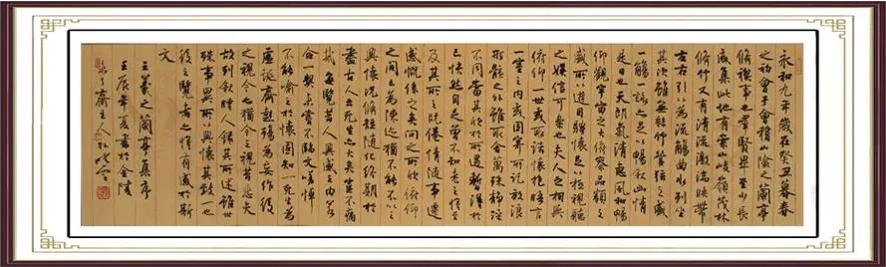 永和九年歲在癸丑暮春
之初會于會稽山陰之蘭亭
脩禊事也羣賢畢至少長
咸集此地有崇山峻領茂林
脩竹又有清流激湍映帶
左右引以為流觴曲水列坐
其次雖無絲竹管弦之盛
一觴一詠亦足以暢叙幽情
是日也天朗氣清惠風和暢
仰觀宇宙之大俯察品類之
盛所以遊目騁懷足以極視聽
之娛信可樂也夫人之相與
俯仰一世或取諸懷抱悟言
一室之內或因寄所託放浪
形骸之外雖取舍萬殊靜躁
不同當其欣於所遇暫得於
己快然自足曾不知老之將至
及其所之既倦情隨事遷
感慨係之矣向之所欣俯仰
之間以為陳迹猶不能不以之
興懷況脩短隨化終期於
盡古人云死生亦大矣豈不痛
哉每覽昔人興感之由若
合一契未嘗不臨文嗟悼
不能喻之於懷固知一死生為
虛誕齊彭殤為妄作後
之視今亦猶今之視昔悲夫
故列敘時人錄其所述雖世
殊事異所以興懷其致一也
後之覽者亦將有感於斯
文
王羲之蘭亭集序
壬辰年夏書於金陵
齋主人